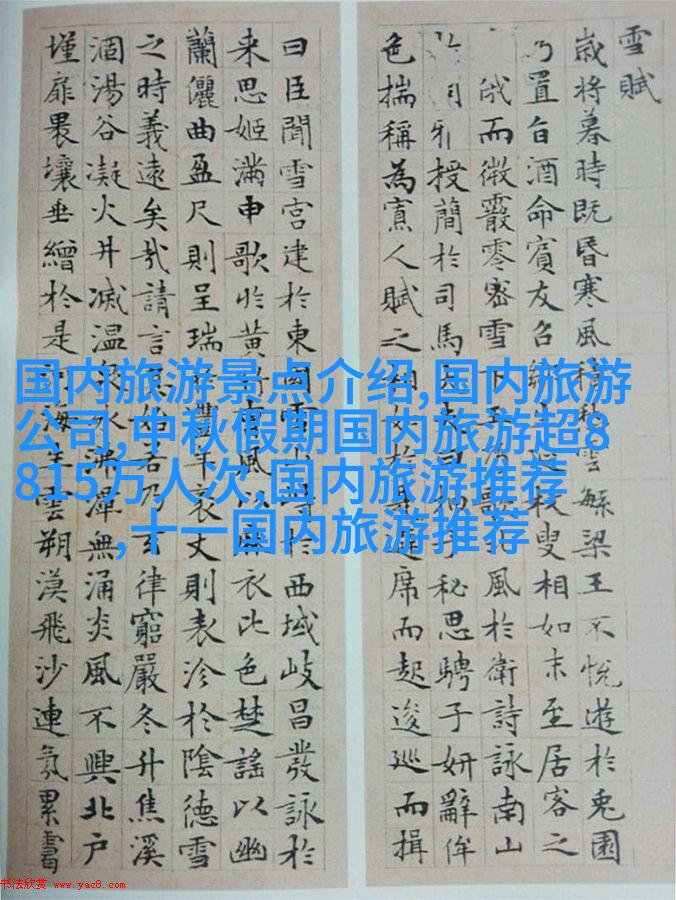 雪賦
歲將暮時既昏寒風積愁雲繁梁王不悅遊於兔園
乃置旨酒命賓友召鄒生延枚叟相如末至居客之
俄而微霰零密雪下王乃歌北風於衛詩詠南山
雅授簡於司馬大夫曰抽子秘思騁子妍辭侔
色揣稱為寡人賦之相如於是避席而起逡巡而揖
曰臣聞雪宮建於東國雪山峙於西域岐昌發詠於
来思姬滿申歌於黃竹曹風以麻衣比色楚謠以幽
蘭儷曲盈尺則呈瑞於豐年袤丈則表沴於陰德雪
之時義遠矣哉請言其始若乃玄律窮嚴冬升焦溪
涸湯谷凝火井滅温泉冰沸潭無涌炎風不興北户
墐扉裸壤垂繒於是河海生雲朔漠飛沙連氛累靄
国内旅游景点介绍,国内旅游
公司,中秋假期国内旅游超8
815万人次,国内旅游推荐
,十一国内旅游推荐
书法欣赏 www.yac8.com